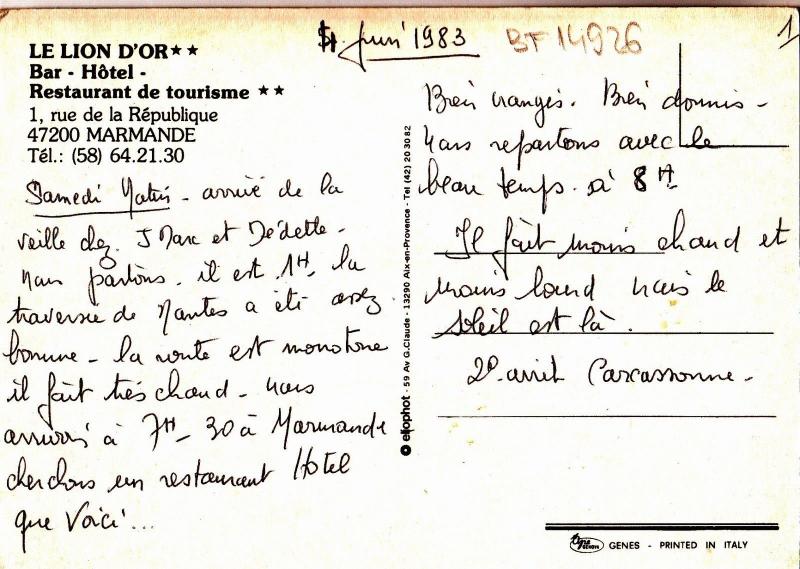 4 juin 1983
BF 14926
1
LE LION D'OR★★
Bar - Hôtel -
Restaurant de tourisme ★★
1, rue de la République
47200 MARMANDE
Tél.: (58) 64.21.30
Samedi Matin - arrivé de la
veille chez J Marc et Dédette -
nous partons. il est 1H. la
traversée de Nantes a été assez
bonne - la route est monotone
il fait très chaud - nous
arrivons à 7H - 30 à Marmande
cherchons un restaurant Hotel
que Voici...
elophot - 59 Av G.Claude - 13290 Aix-en-Provence - Tel (42) 20 30 82
Bien mangés. Bien dormis -
nous repartons avec le
beau temps. à 8H.
Il fait moins chaud et
moins lourd mais le
soleil est là.
2e arrêt Carcassonne -
GENES - PRINTED IN ITALY